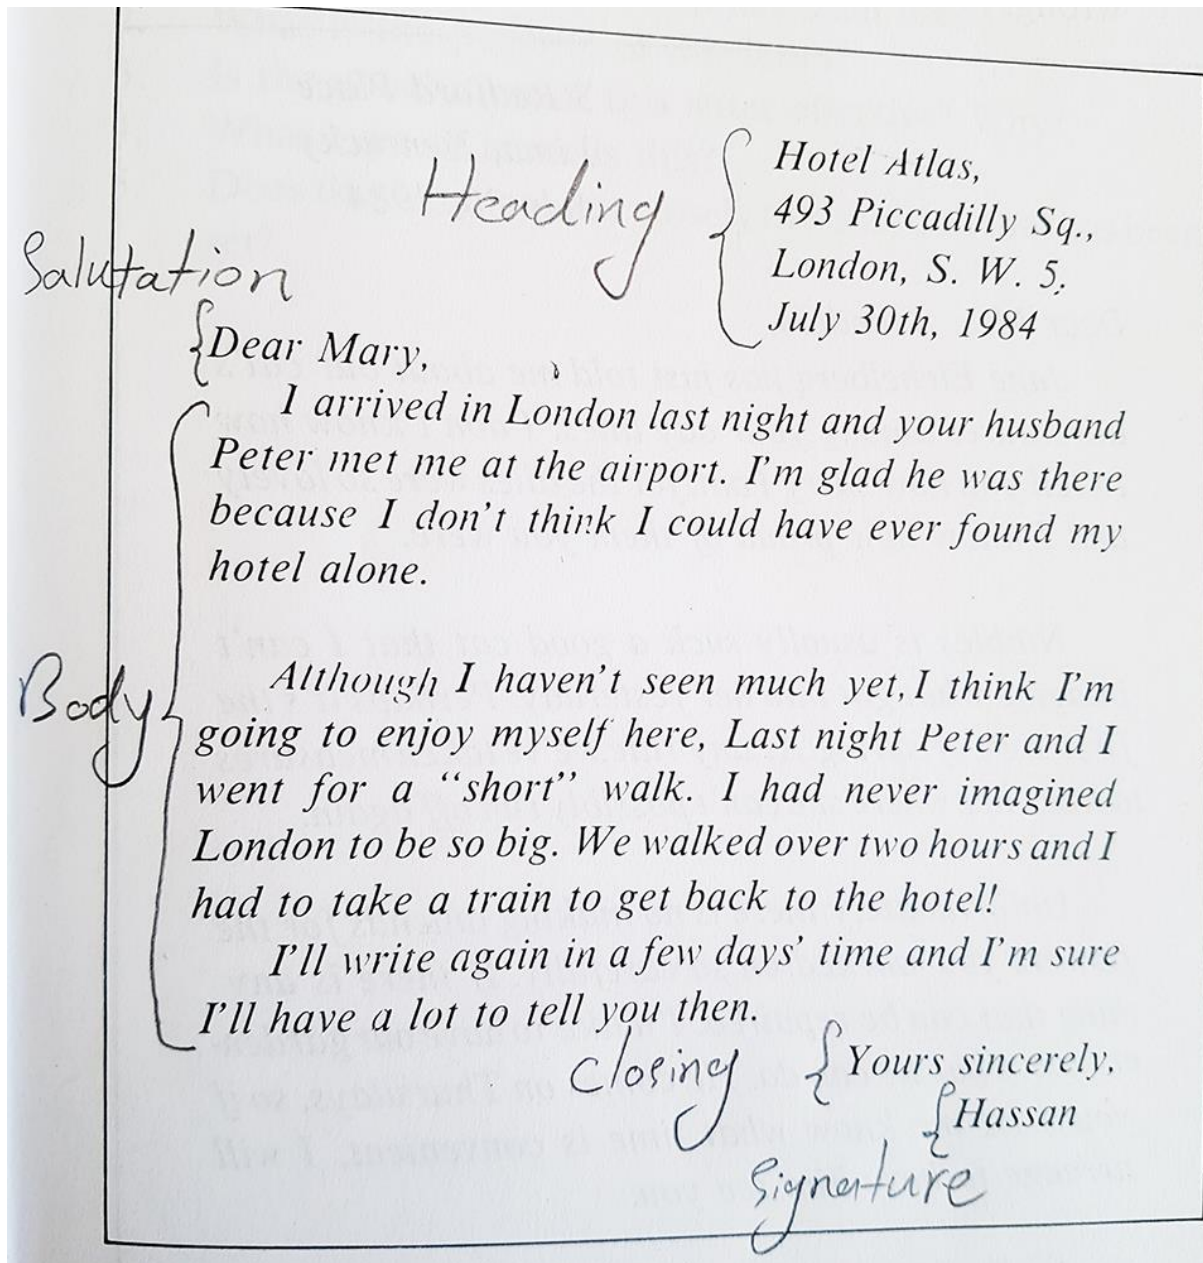 Heading
Hotel Atlas,
493 Piccadilly Sq.,
London, S. W. 5,
July 30th, 1984
Salutation
Dear Mary,
I arrived in London last night and your husband
Peter met me at the airport. I'm glad he was there
because I don't think I could have ever found my
hotel alone.
Body
Although I haven't seen much yet, I think I'm
going to enjoy myself here, Last night Peter and I
went for a “short” walk. I had never imagined
London to be so big. We walked over two hours and I
had to take a train to get back to the hotel!
I'll write again in a few days' time and I'm sure
I'll have a lot to tell you then.
Closing
Yours sincerely,
Hassan
Signature